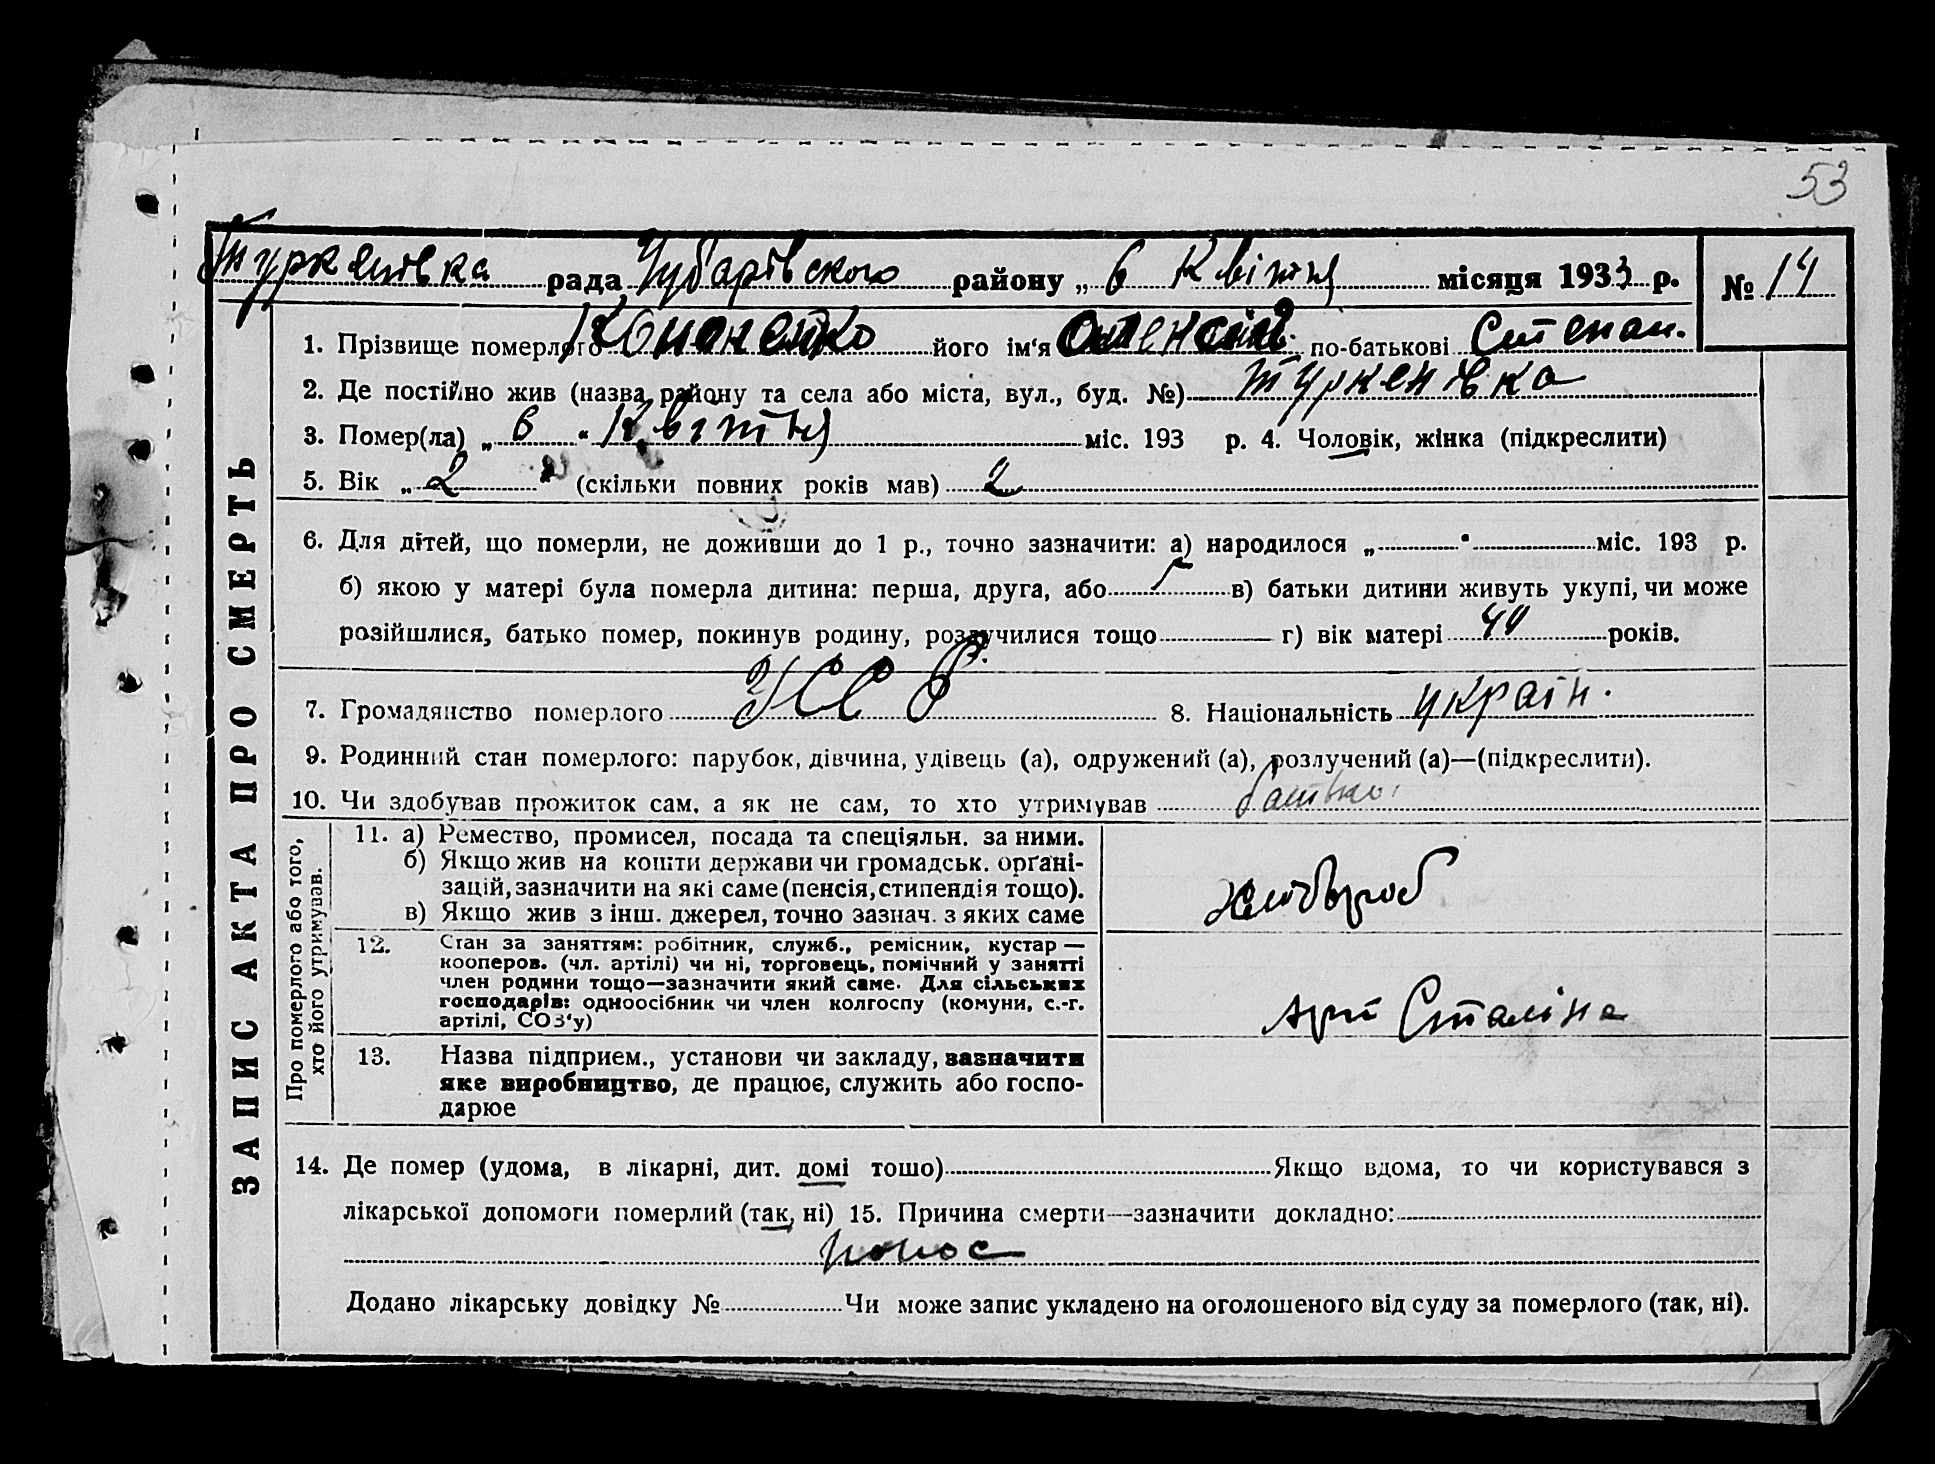 53
Туркенівка рада Чубарівського району „ 6 Квітня місяця 1933 р. № 14
1. Прізвище померлого Кононенко його ім‘я по-батькові Степан.
2. Де постійно жив (назва району та села або міста, вул., буд. №) Туркенівка
3. Помер(ла) „ 6 “ Квітня міс. 193 р. 4. Чоловік, жінка (підкреслити)
5. Вік „ 2 “ (скільки повних років мав) 2
6. Для дітей, що померли, не доживши до 1 р., точно зазначити: а) народилося „ “ міс. 193 р.
б) якою у матері була померла дитина: перша, друга, або в) батьки дитини живуть укупі, чи може
розійшлися, батько помер, покинув родину, розлучилися тощо г) вік матері 44 років.
7. Громадянство померлого УССР. 8. Національність україн.
9. Родинний стан померлого: парубок, дівчина, удівець (а), одружений (а), розлучений (а)—(підкреслити).
10. Чи здобував прожиток сам, а як не сам, то хто утримував батько
ЗАПИС АКТА ПРО СМЕРТЬ
Про померлого або того,
хто його утримував.
11. а) Ремество, промисел, посада та спеціяльн. за ними.
б) Якщо жив на кошти держави чи громадськ. орґані-
зацій, зазначити на які саме (пенсія, стипендія тощо).
в) Якщо жив з інш. джерел, точно зазнач. з яких саме
хлібороб
12. Стан за заняттям: робітник, служб., ремісник, кустар —
кооперов. (чл. артілі) чи ні, торговець, помічний у занятті
член родини тощо—зазначити який саме. Для сільських
господарів: одноосібник чи член колгоспу (комуни, с.-г.
артілі, СОЗ‘у)
Арт Сталіна
13. Назва підприєм., установи чи закладу, зазначити
яке виробництво, де працює, служить або госпо-
дарює
14. Де помер (удома, в лікарні, дит. домі тощо) Якщо вдома, то чи користувався з
лікарської допомоги померлий (так, ні) 15. Причина смерти—зазначити докладно:
понос
Додано лікарську довідку № Чи може запис укладено на оголошеного від суду за померлого (так, ні).